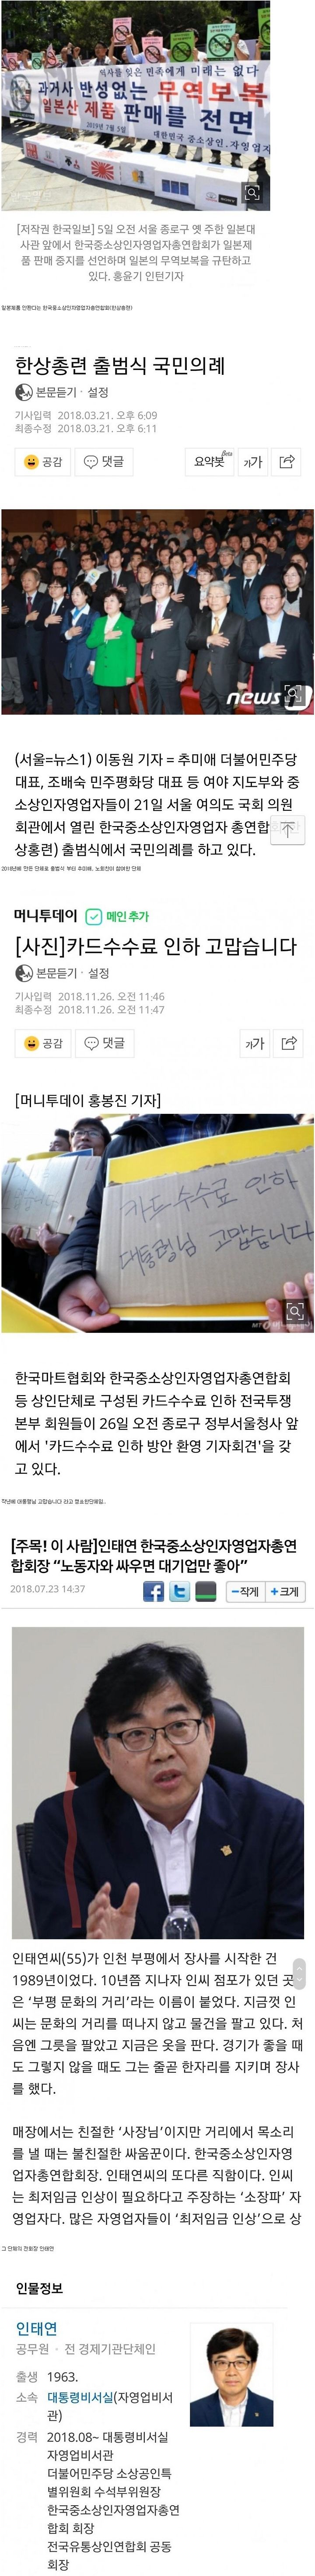 역사를 잊은 민족에게 미래는 없다
과거사 반성없는 무역보복
일본산 제품 판매를 전면
2019년 7월 5일
대한민국 중소상인, 자영업자
[저작권 한국일보] 5일 오전 서울 종로구 옛 주한 일본대
사관 앞에서 한국중소상인자영업자총연합회가 일본제
품 판매 중지를 선언하며 일본의 무역보복을 규탄하고
있다. 홍윤기 인턴기자
일본제품 안판다는 한국중소상인자영업자총연합회(한상총련)
한상총련 출범식 국민의례
본문듣기 · 설정
기사입력 2018.03.21. 오후 6:09
최종수정 2018.03.21. 오후 6:11
공감 댓글 요약봇 Beta 가가
news1
(서울=뉴스1) 이동원 기자 = 추미애 더불어민주당
대표, 조배숙 민주평화당 대표 등 여야 지도부와 중
소상인자영업자들이 21일 서울 여의도 국회 의원
회관에서 열린 한국중소상인자영업자 총연합
상총련) 출범식에서 국민의례를 하고 있다.
2018년에 만든 단체로 출범식 부터 추미애, 노회찬이 참여한 단체
머니투데이 메인 추가
[사진]카드수수료 인하 고맙습니다
본문듣기 · 설정
기사입력 2018.11.26. 오전 11:46
최종수정 2018.11.26. 오전 11:47
공감 댓글 가가
[머니투데이 홍봉진 기자]
카드수수료 인하
대통령님 고맙습니다
한국마트협회와 한국중소상인자영업자총연합회
등 상인단체로 구성된 카드수수료 인하 전국투쟁
본부 회원들이 26일 오전 종로구 정부서울청사 앞
에서 '카드수수료 인하 방안 환영 기자회견'을 갖
고 있다.
작년에 대통령님 고맙습니다 라고 했던단체임..
[주목! 이 사람]인태연 한국중소상인자영업자총연
합회장 “노동자와 싸우면 대기업만 좋아”
2018.07.23 14:37
작게 크게
인태연씨(55)가 인천 부평에서 장사를 시작한 건
1989년이었다. 10년쯤 지나자 인씨 점포가 있던 곳
은 ‘부평 문화의 거리’라는 이름이 붙었다. 지금껏 인
씨는 문화의 거리를 떠나지 않고 물건을 팔고 있다. 처
음엔 그릇을 팔았고 지금은 옷을 판다. 경기가 좋을 때
도 그렇지 않을 때도 그는 줄곧 한자리를 지키며 장사
를 했다.
매장에서는 친절한 ‘사장님’이지만 거리에서 목소리
를 낼 때는 불친절한 싸움꾼이다. 한국중소상인자영
업자총연합회장. 인태연씨의 또다른 직함이다. 인씨
는 최저임금 인상이 필요하다고 주장하는 ‘소장파’ 자
영업자다. 많은 자영업자들이 ‘최저임금 인상’으로 상
그 단체의 전회장 인태연
인물정보
인태연
공무원 · 전 경제기관단체인
출생 1963.
소속 대통령비서실(자영업비서
관)
경력 2018.08~ 대통령비서실
자영업비서관
더불어민주당 소상공인특
별위원회 수석부위원장
한국중소상인자영업자총연
합회 회장
전국유통상인연합회 공동
회장